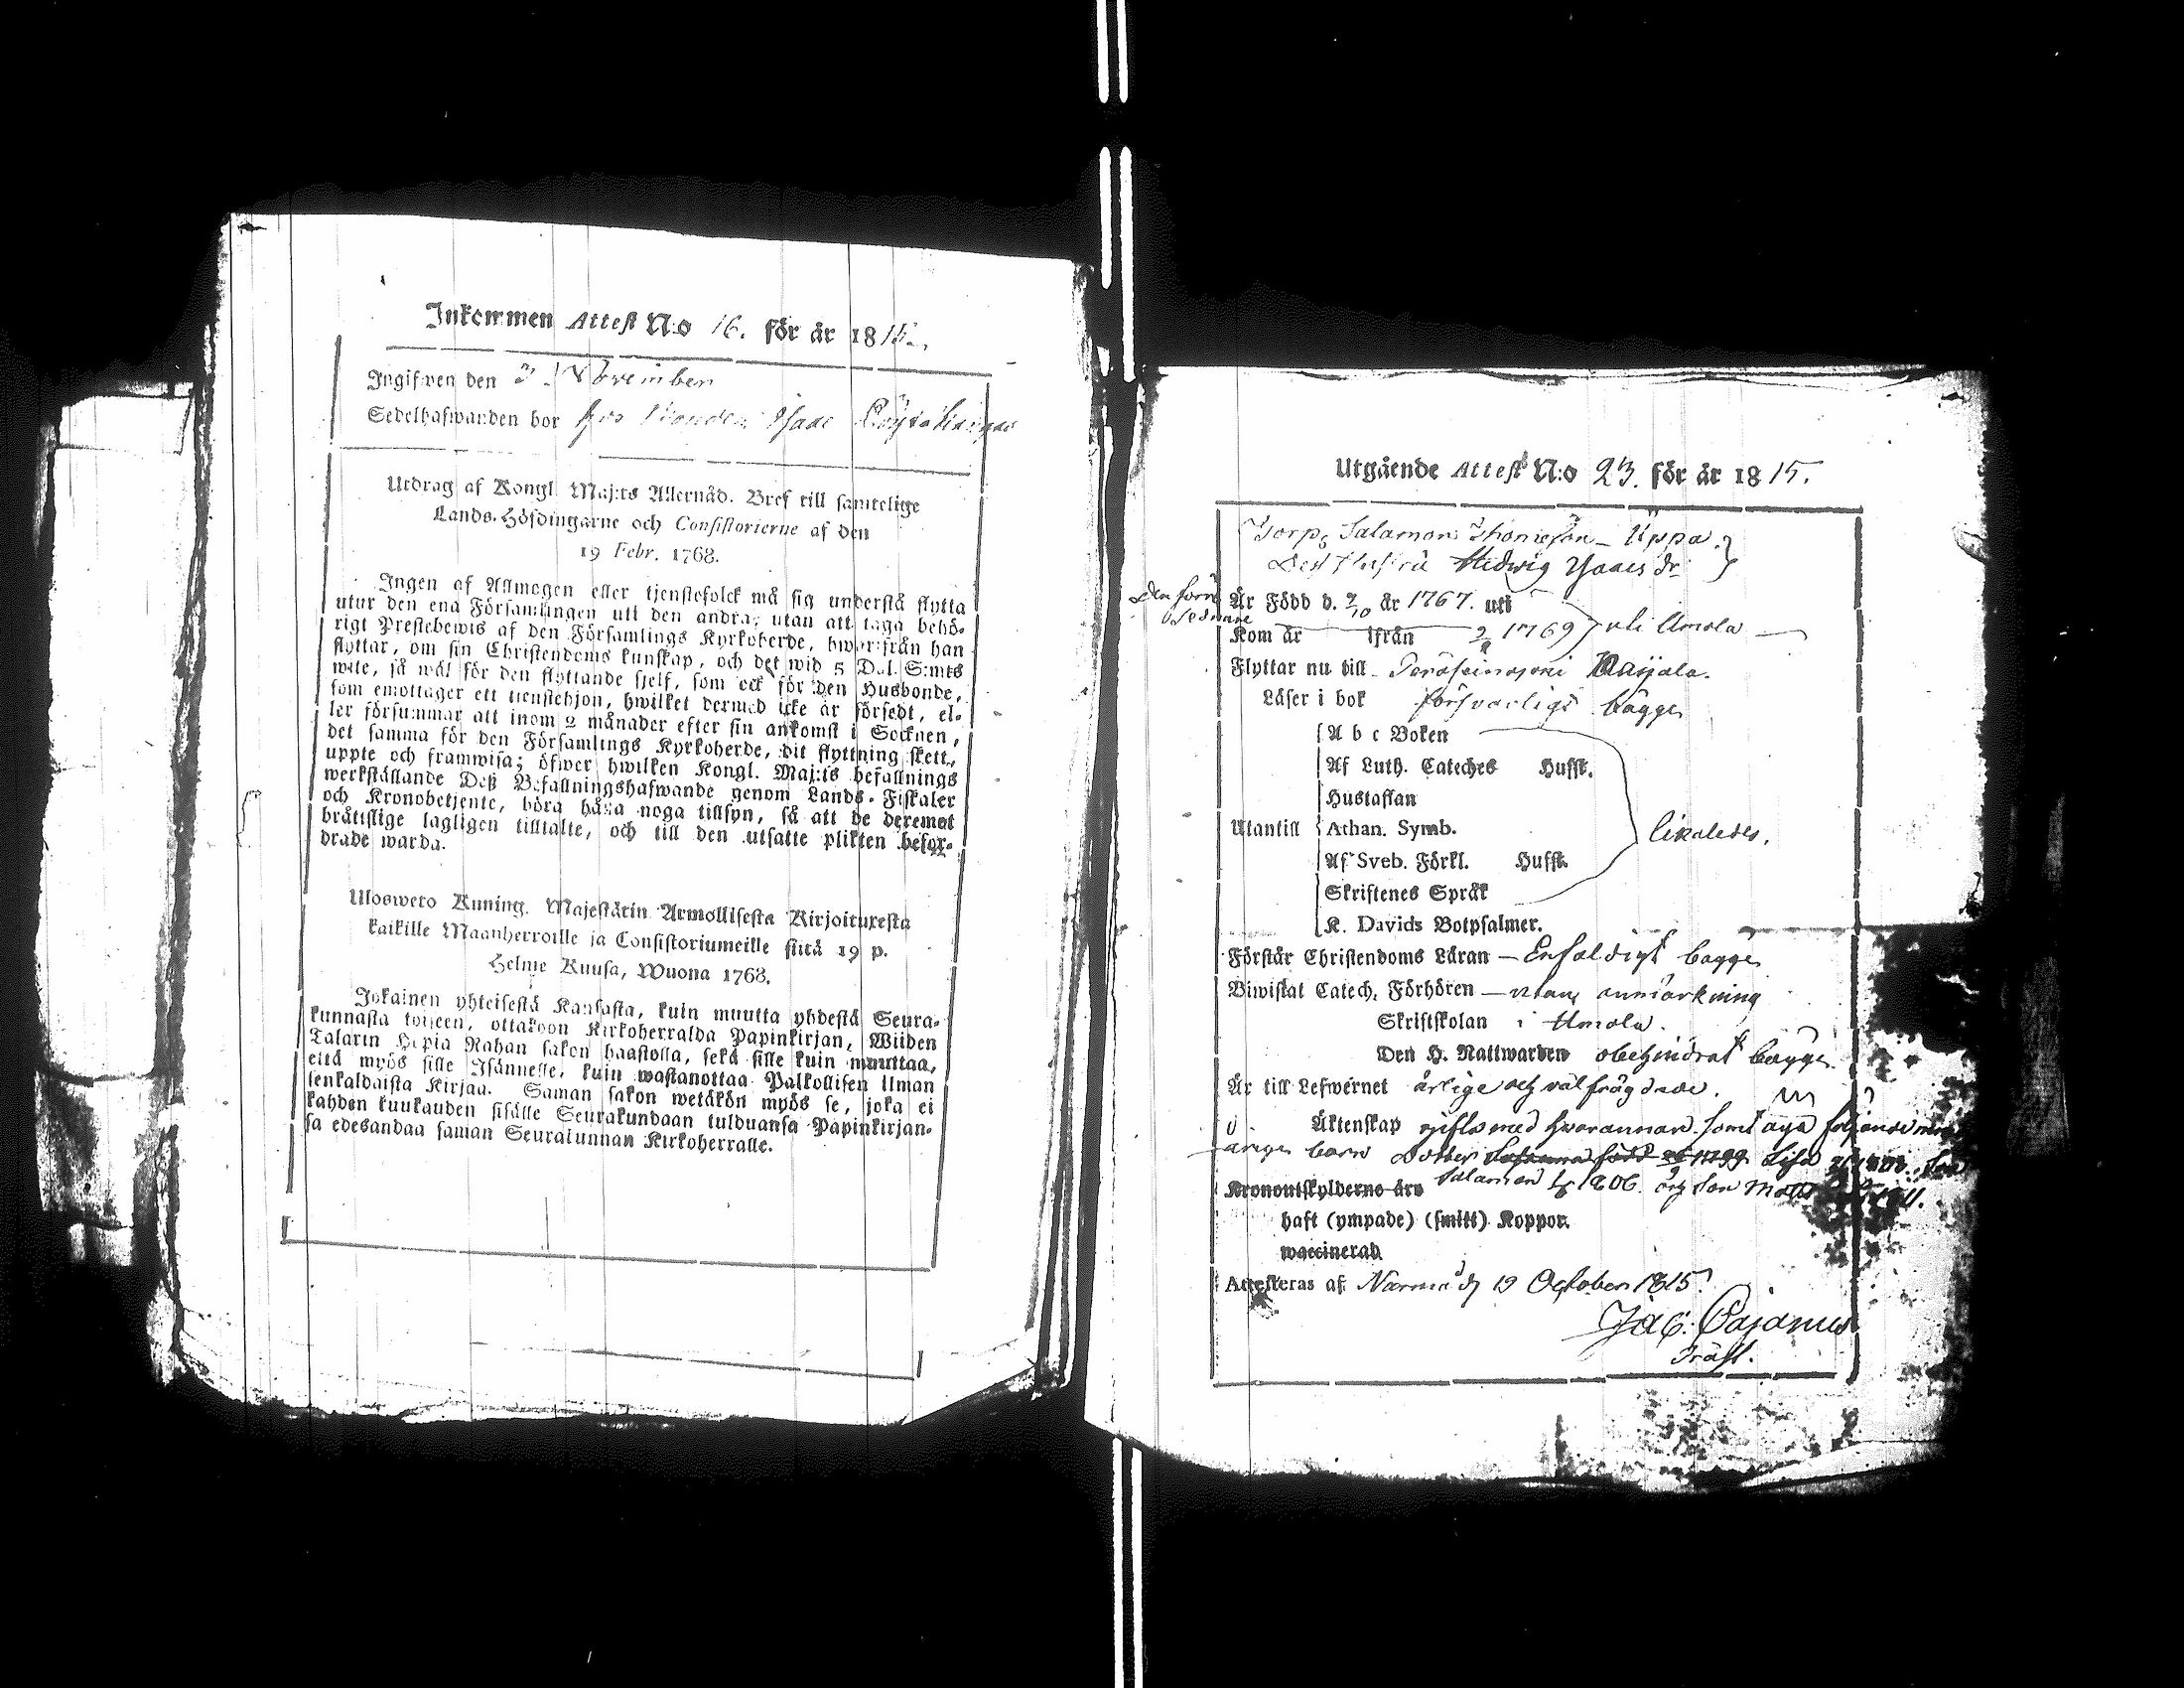 Inkommen Attest N:o 16. för år 1815.
Ingifwen den 3 November
Sedelhafwanden bor hos Bonden Isaac Löytökangas
Utdrag af Kongl. Maj:ts Allernåd. Bref till samtelige
Lands-Höfdingarne och Consistorierne af den
19 Febr. 1768.
Ingen af Allmogen eller tjenstefolck må sig understå flytta
utur den ena Församlingen uti den andra, utan att taga behö-
rigt Prestebewis af den Församlings Kyrkoherde, hwarifrån han
flyttar, om sin Christendoms kunskap, och det wid 5 Dal. S:mts
wite, så wäl för den flyttande sjelf, som ock för den Husbonde,
som emottager ett tienstehjon, hwilket dermed icke är försedt, el-
ler försummar att inom 2 månader efter sin ankomst i Socknen,
det samma för den Församlings Kyrkoherde, dit flyttning skett,
uppte och framwisa; öfwer hwilken Kongl. Maj:ts befallnings
werkställande Deß Befallningshafwande genom Lands-Fiskaler
och Kronobetjente, böra hafwa noga tillsyn, så att de deremot
bråtislige lagligen tilltalte, och till den utsatte plikten befor-
drade warda.
Ulosweto Kuning. Majestätin Armollisesta Kirjoituxesta
kaikille Maanherroille ja Consistoriumeille siitä 19 p.
Helme Kuusa, Wuona 1768.
Jokainen yhteisestä Kansasta, kuin muutta yhdestä Seura-
kunnasta toiseen, ottakoon Kirkoherralda Papinkirjan, Wiiden
Talarin Hopia Rahan sakon haastolla, sekä sille kuin muuttaa,
että myös sille Isännelle, kuin wastanottaa Palkollisen ilman
senkaldaista Kirjaa. Saman sakon wetäkön myös se, joka ei
kahden kuukauden sisälle Seurakundaan tulduansa Papinkirjan-
sa edesandaa saman Seurakunnan Kirkoherralle.
Utgående Attest N:o 23. för år 1815.
Torp. Salamon Thomeson Uppa.
Dess Hustru Hedwig Isaacs dr
Den förre Är Född d. 9/10 år 1767. uti
sednare Kom år ifrån 2 1769 uti Umola
Flyttar nu till Peräseinajoki Kapela.
Läser i bok försvarligt bägge
A b c Boken
Af Luth. Cateches Husst.
Hustaflan
Utantill Athan. Symb. likaledes.
Af Sveb. Förkl. Husst.
Skriftenes Språk
K. Davids Botpsalmer.
Förstår Christendoms Läran Enfaldigt bägge
Biwistat Catech. Förhören utan anmärkning
Skriftskolan i Umola.
Den H. Nattwarden obehindrat bägge
Är till Lefwernet ärlige och välfrägdade.
i Äktenskap gifta med hvarannan samt äga följande
åriga barn Dotter Susanna född 1799 Lisa Son
Kronoutskylderne äro Salamon 1806. och Son Matts 1811.
haft (ympade) (smitt) Koppor.
waccinerad
Attesteras af Närmå d. 19 October 1815.
Jac. Cajanus
Präst.